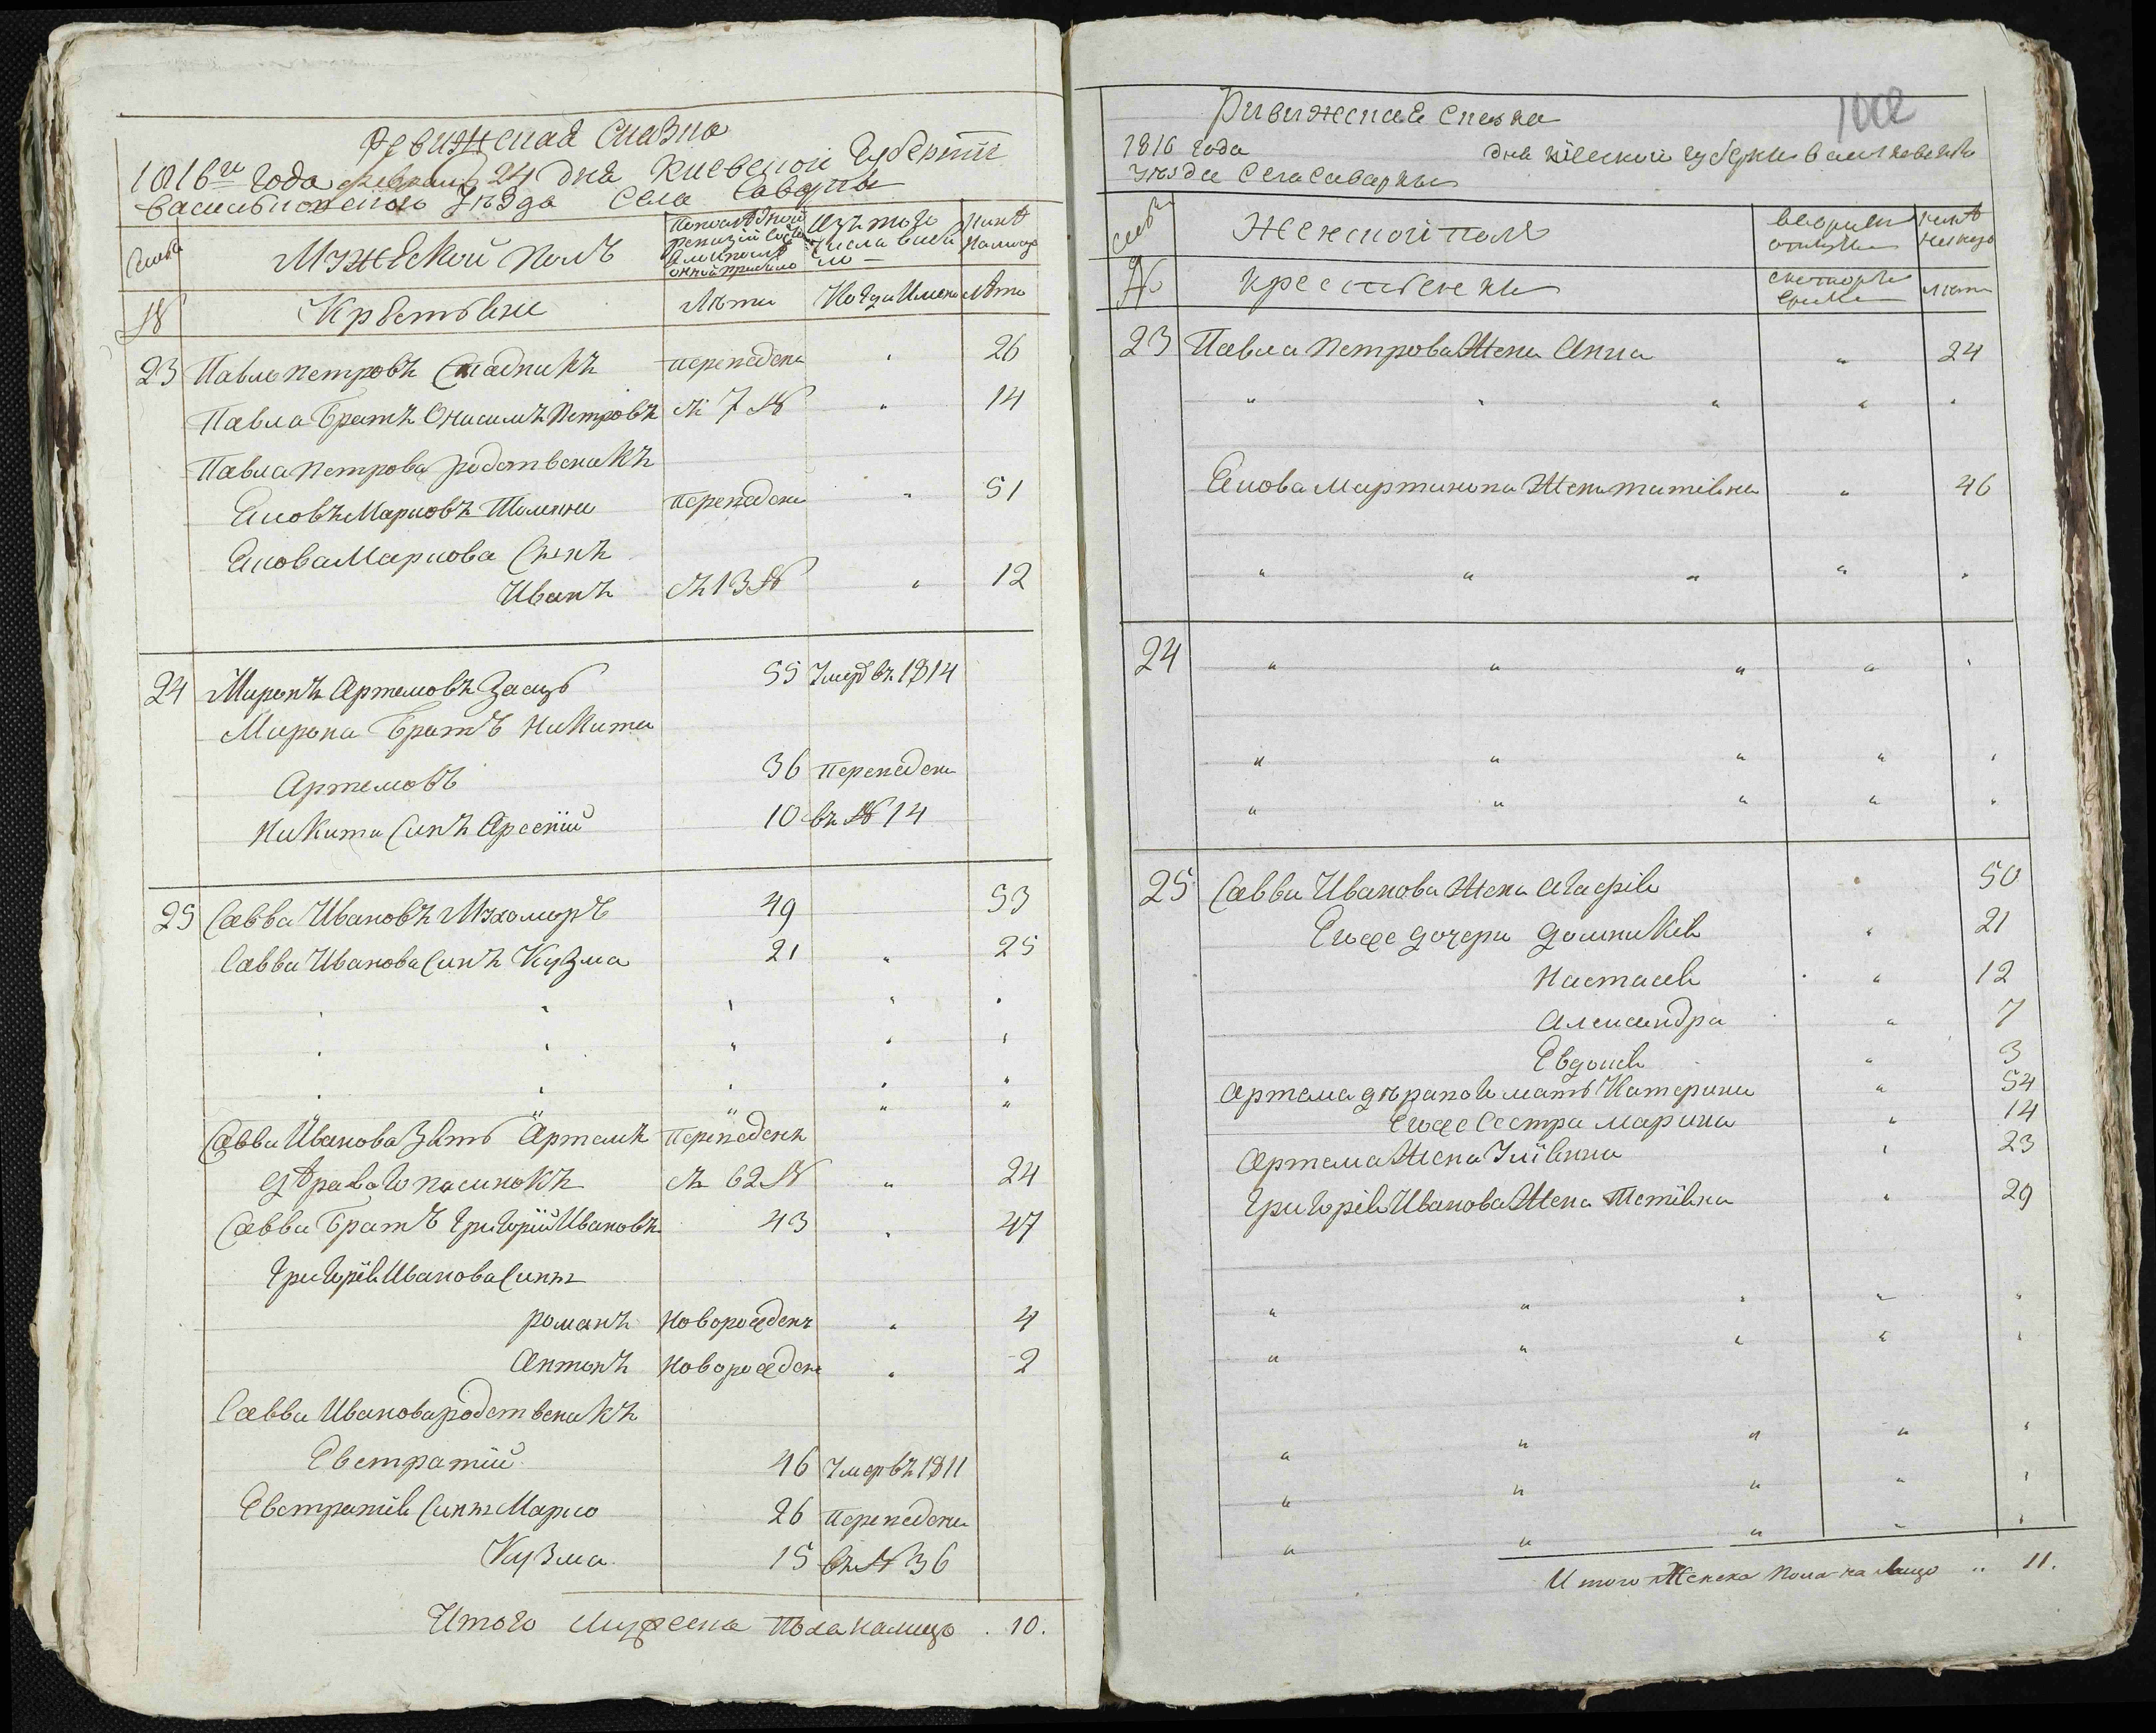 Ревижская Сказка
1816го Года февраля 24 дня Киевской Губернии
Васильковского Уезда Села Саварки
Семьи
Мужеской Полъ
По последней ревизии состояло и после оной прибыло
Изъ того числа выбыло
Ныне на лицо
№
Крестьяне
Лѣта
Когда именно
Лѣта
23 Павло Петровъ Складникъ переведенъ " 26
Павла Братъ Онисимъ Петровъ съ 7 № " 14
Павла Петрова родственикъ
Яковъ Марковъ переведенъ " 51
Якова Маркова Сынъ
Иванъ съ 13 № " 12
24 Миронъ Артемовъ Заецъ 55 Умер въ 1814
Мирона Братъ Никита
Артемовъ 36 переведенъ
Никиты Синъ Арсений 10 въ № 14
25 Савва Ивановъ Мухоморъ 49 53
Саввы Иванова Синъ Кузма 21 " 25
Саввы Иванова Зять Артемъ переведенъ
пасинокъ съ 62 № " 24
Саввы Братъ Григорій Ивановъ 43 " 47
Григорія Иванова Синъ
романъ Новорожденъ " 4
Антонъ Новорожденъ " 2
Саввы Иванова родственикъ
Евстратий 46 Умер въ 1811
Евстратія Синъ Марко 26 переведены
Кузма 15 въ № 36
Итого мужеска пола налицо . 10.
1002
Ривижская Сказка
1816 года дня Кіевской губернии Васильковского
уезда Села Саварки
Семьи
Женской пола
Ныне на лицо
№
крестьянки
лета
23 Павла Петрова Жена Анна " 24
" " " " "
Якова Мартинова Жена татіяна " 46
" " " " "
24 " " " " "
" " " " "
" " " " "
25 Саввы Иванова Жена Агафія " 50
Егоже дочери Домникія " 21
Настасія " 12
Александра " 7
Евдокія " 3
Артема мать Катерина " 54
Егоже Сестра марина " 14
Артема Жена Уліянна " 23
Григорія Иванова Жена Тетіяна " 29
" " " " "
" " " " "
" " " " "
" " " " "
" " " " "
Итого Женска пола на лицо .. 11.